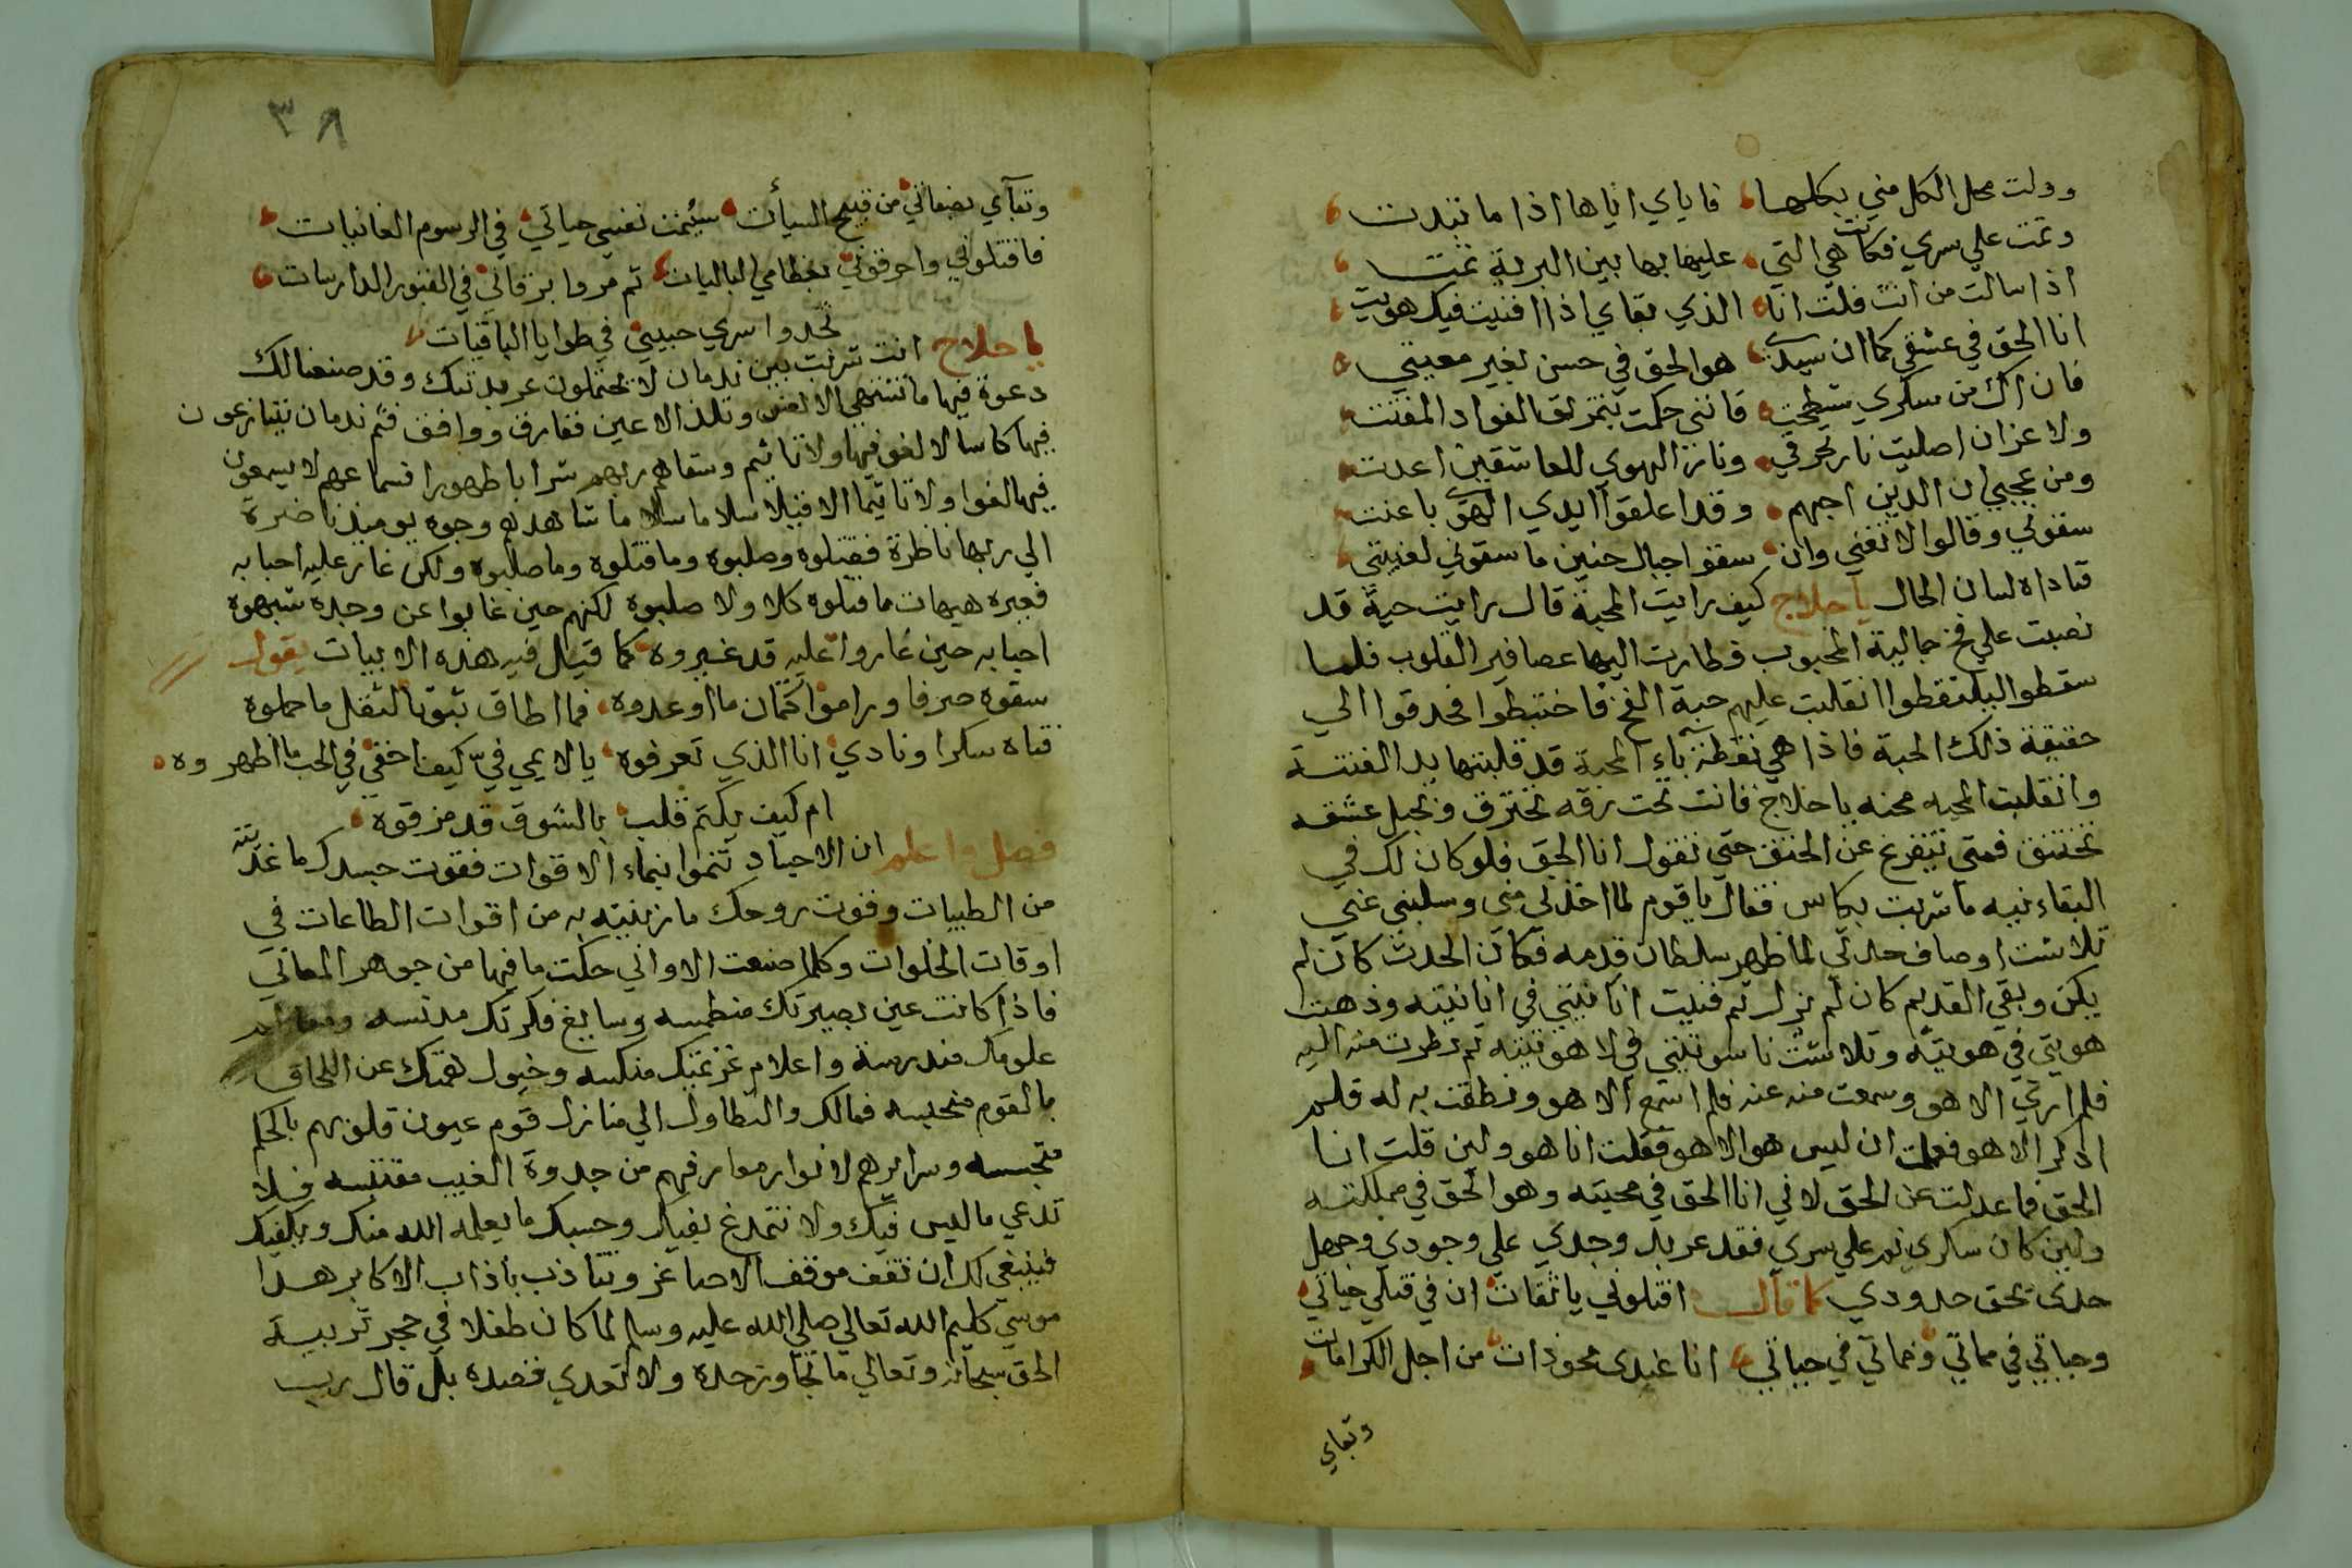 وولت محل الكل مني بكلها فاياي اناها اذا ما تبدت
ونمت علي سري فكانت هي التي عليها بها بين البرية نمت
اذا سالت من انت قلت انا الذي بقاي اذا افنيت فيك هويتي
انا الحق في عشقي كما ان سيدي هو الحق في حسن بغير معيتي
فان اك من سكري شطحت فانني حكمت بتمزيق الفواد المفتت
ولا غزان اصليت نار تحرقي ونار الهوي للعاشقين اعدت
ومن عجبي ان الذين احبهم وقد اعلقوا ايدي الهوي باعنت
سقوني وقالوا لا تغني وان سقوا جبال حنين ما سقوني لغنيتي
فناداه لسان الحال يا حلاج كيف رايت المحبة قال رايت حبة قد
نصبت علي فخ جمالية المحبوب فطارت اليها عصافير القلوب فلما
سقطوا ليلتقطوا انقلبت عليهم حبة الفخ فاختبطوا فحدقوا الي
حقيقة ذلك الحبة فاذا هي نقطة باء المحبة قد قلبتها يد الفتنة
وانقلبت المحبه محنه يا حلاج فانت تحت نرقه تحترق وبحبل عشقه
تختنق فمتي تتفرغ عن الخنق حتي تقول انا الحق فلو كان لك في
البقاء نيه ما شربت بكاس فقال يا قوم لما اخذني مني وسلبني عني
تلاشت اوصاف حدثي لما ظهر سلطان قدمه فكان الحدث كان لم
يكن وبقي القديم كان لم يزل ثم فنيت انانيتي في انانيته وذهبت
هويتي في هويته وتلاشت ناسوتيتي في لاهوتيته ثم نظرت منه اليه
فلم اري الا هو وسمعت منه عنه فلم اسمع الا هو ونطقت به له فلم
اذكر الا هو فعلمت ان ليس هو الا هو فقلت انا هو ولين قلت انا
الحق فما عدلت عن الحق لاني انا الحق في محبته وهو الحق في مملكته
ولين كان سكري نم علي سري فقد عربد وجدي علي وجودي وجهل
حدى بحق حدودي كما قال اقتلوني يا ثقات ان في قتلي حياتي
وحياتي في مماتي ومماتي في حياتي انا عندى محو ذات من اجل الكرامات
وبقاي
٣٨
وبقآي بصفاتي من قبيح السيأت سئمت نفسي حياتي في الرسوم الفانيات
فاقتلوني واحرقوني بعظامي الباليات ثم مروا برفاتي في القبور الدارسات
تجدوا سري حبيبي في طوايا الباقيات
يا حلاج انت شربت بين ندمان لا يحتملون عربدتك وقد صنعنا لك
دعوة فيها ما تشتهي الانفس وتلذ الاعين ففارق ووافق فثم ندمان يتنازعون
فيها كاسا لا لغو فيها ولا تاثيم وسقاهم ربهم شرابا طهورا فسماعهم لا يسمعون
فيها لغوا ولا تاثيما الا قيلا سلاما سلاما شاهدهم وجوه يوميذ ناضرة
الي ربها ناظرة فقتلوه وصلبوه وما قتلوه وما صلبوه ولكن غار عليه احبابه
فغيره هيهات ما قتلوه كلا ولا صلبوه لكنهم حين غابوا عن وجده شبهوه
احبابه حين غاروا عليه قد غيروه كما قيل فيه هذه الابيات يقول
سقوه صرفا وراموا كتمان ما اودعوه فما اطاق ثبوتا لثقل ما حملوه
فتاه سكرا ونادي انا الذي تعرفوه يا لايمي في كيف اخفي في الحب ما اظهروه
ام كيف يكتم قلب بالشوق قد مزقوه
فصل واعلم ان الاجساد تنموا بنماء الاقوات فقوت جسدك ما غذيته
من الطيبات وقوت روحك ما زينته به من اقوات الطاعات في
اوقات الخلوات وكلما صنعت الاواني حكت ما فيها من جوهر المعاني
فاذا كانت عين بصيرتك منطمسه وسابغ فكرتك مدنسه ومعالم
علومك مندرسة واعلام عزمتك منكسه وخيول همتك عن اللحاق
بالقوم محتبسه فمالك والتطاول الي منازل قوم عيون قلوبهم بالحكم
منبجسه وسرايرهم لانوار معارفهم من جدوة الغيب مقتبسه فلا
تدعي ما ليس فيك ولا تتمدغ بفيك وحسبك ما يعلمه الله منك ويكفيك
فينبغي لك ان تقف موقف الاصاغر وتتاذب باذاب الاكابر هذا
موسي كليم الله تعالي صلي الله عليه وسلم لما كان طفلا في حجر تربية
الحق سبحانه وتعالي ما تجاوز حده ولا تعدي قصده بل قال رب